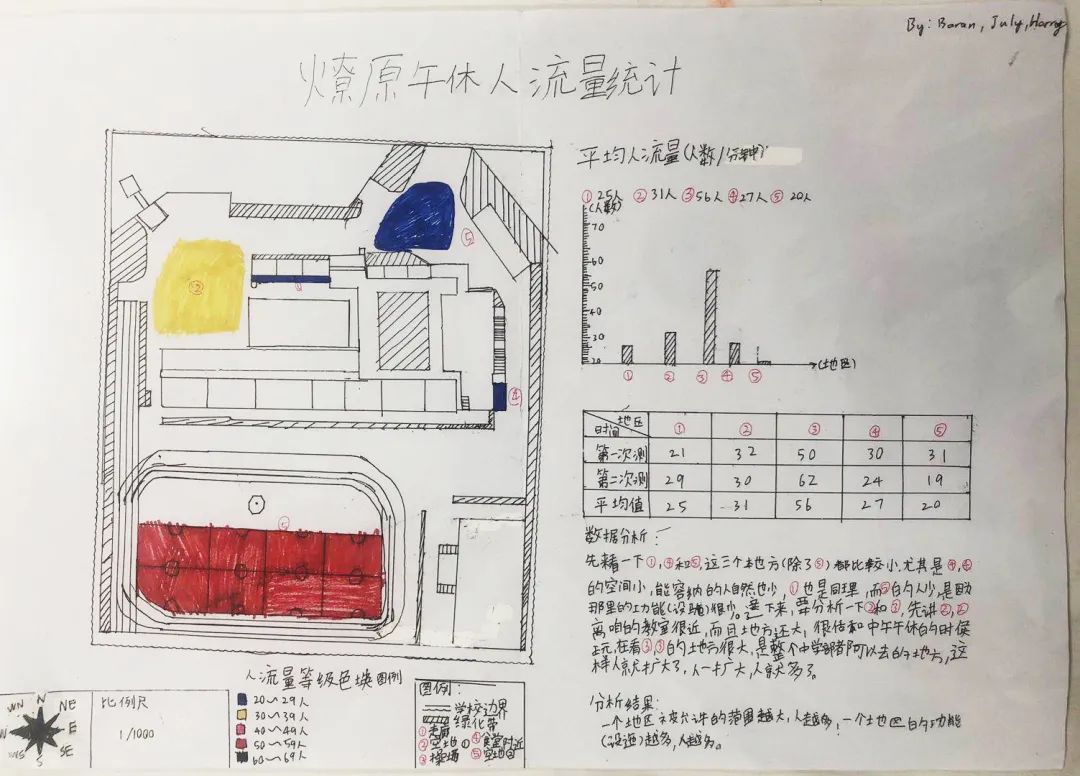 By: Baran, July, Harry
燎原午休人流量统计
平均人流量(人数/分钟)
① 25人 ② 31人 ③ 56人 ④ 27人 ⑤ 20人
(人数)
70
60
50
40
30
20
(地区)
① ② ③ ④ ⑤
②
⑤
①
④
⑤
地区 ① ② ③ ④ ⑤
时间
第一次测 21 32 50 30 31
第二次测 29 30 62 24 19
平均值 25 31 56 27 20
数据分析:
先来看一下①,④和⑤,这三个地方(除了⑤)都比较小.尤其是④,④
的空间小,能容纳的人自然也少,①也是同理,而⑤的人少,是因
那里的功能(设施)很少。接下来,要分析一下②和③,先讲②,②
离咱的教室很近,而且地方还大,很适和中午午休的时候
玩.在看③,③的地方很大,是整个中学部都可以去的地方,这
样人就扩大了,人一扩大,人就多了。
分析结果:
一个地区被允许的范围越大,人越多,一个地区的功能
(设施)越多,人越多。
人流量等级色块图例
20~29人
30~39人
40~49人
50~59人
60~69人
图例:
学校边界
绿化带
①走廊
②空地① ④食堂附近
③操场 ⑤空地②
比例尺
1/1000
WN N NE
W E
WS S SE